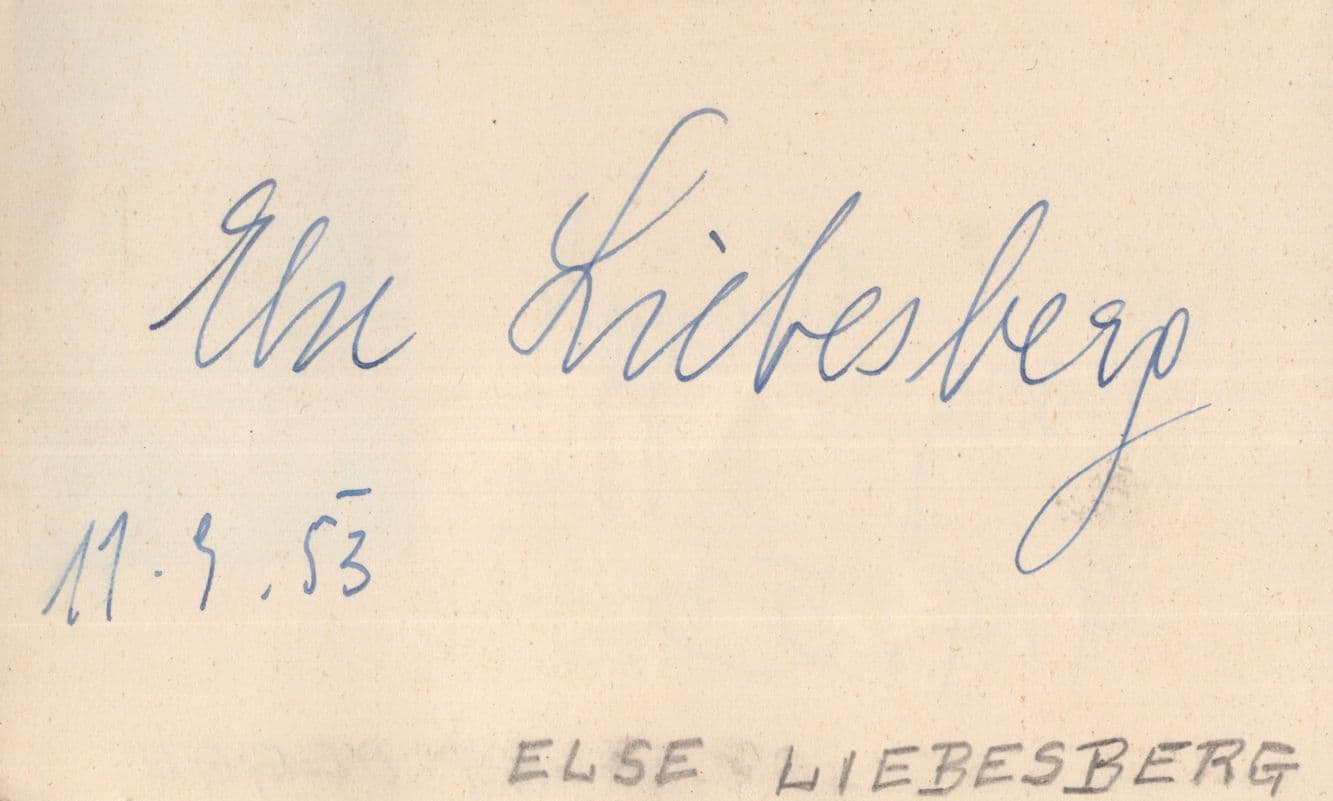 Else Liebesberg
11.9.53
ELSE LIEBESBERG